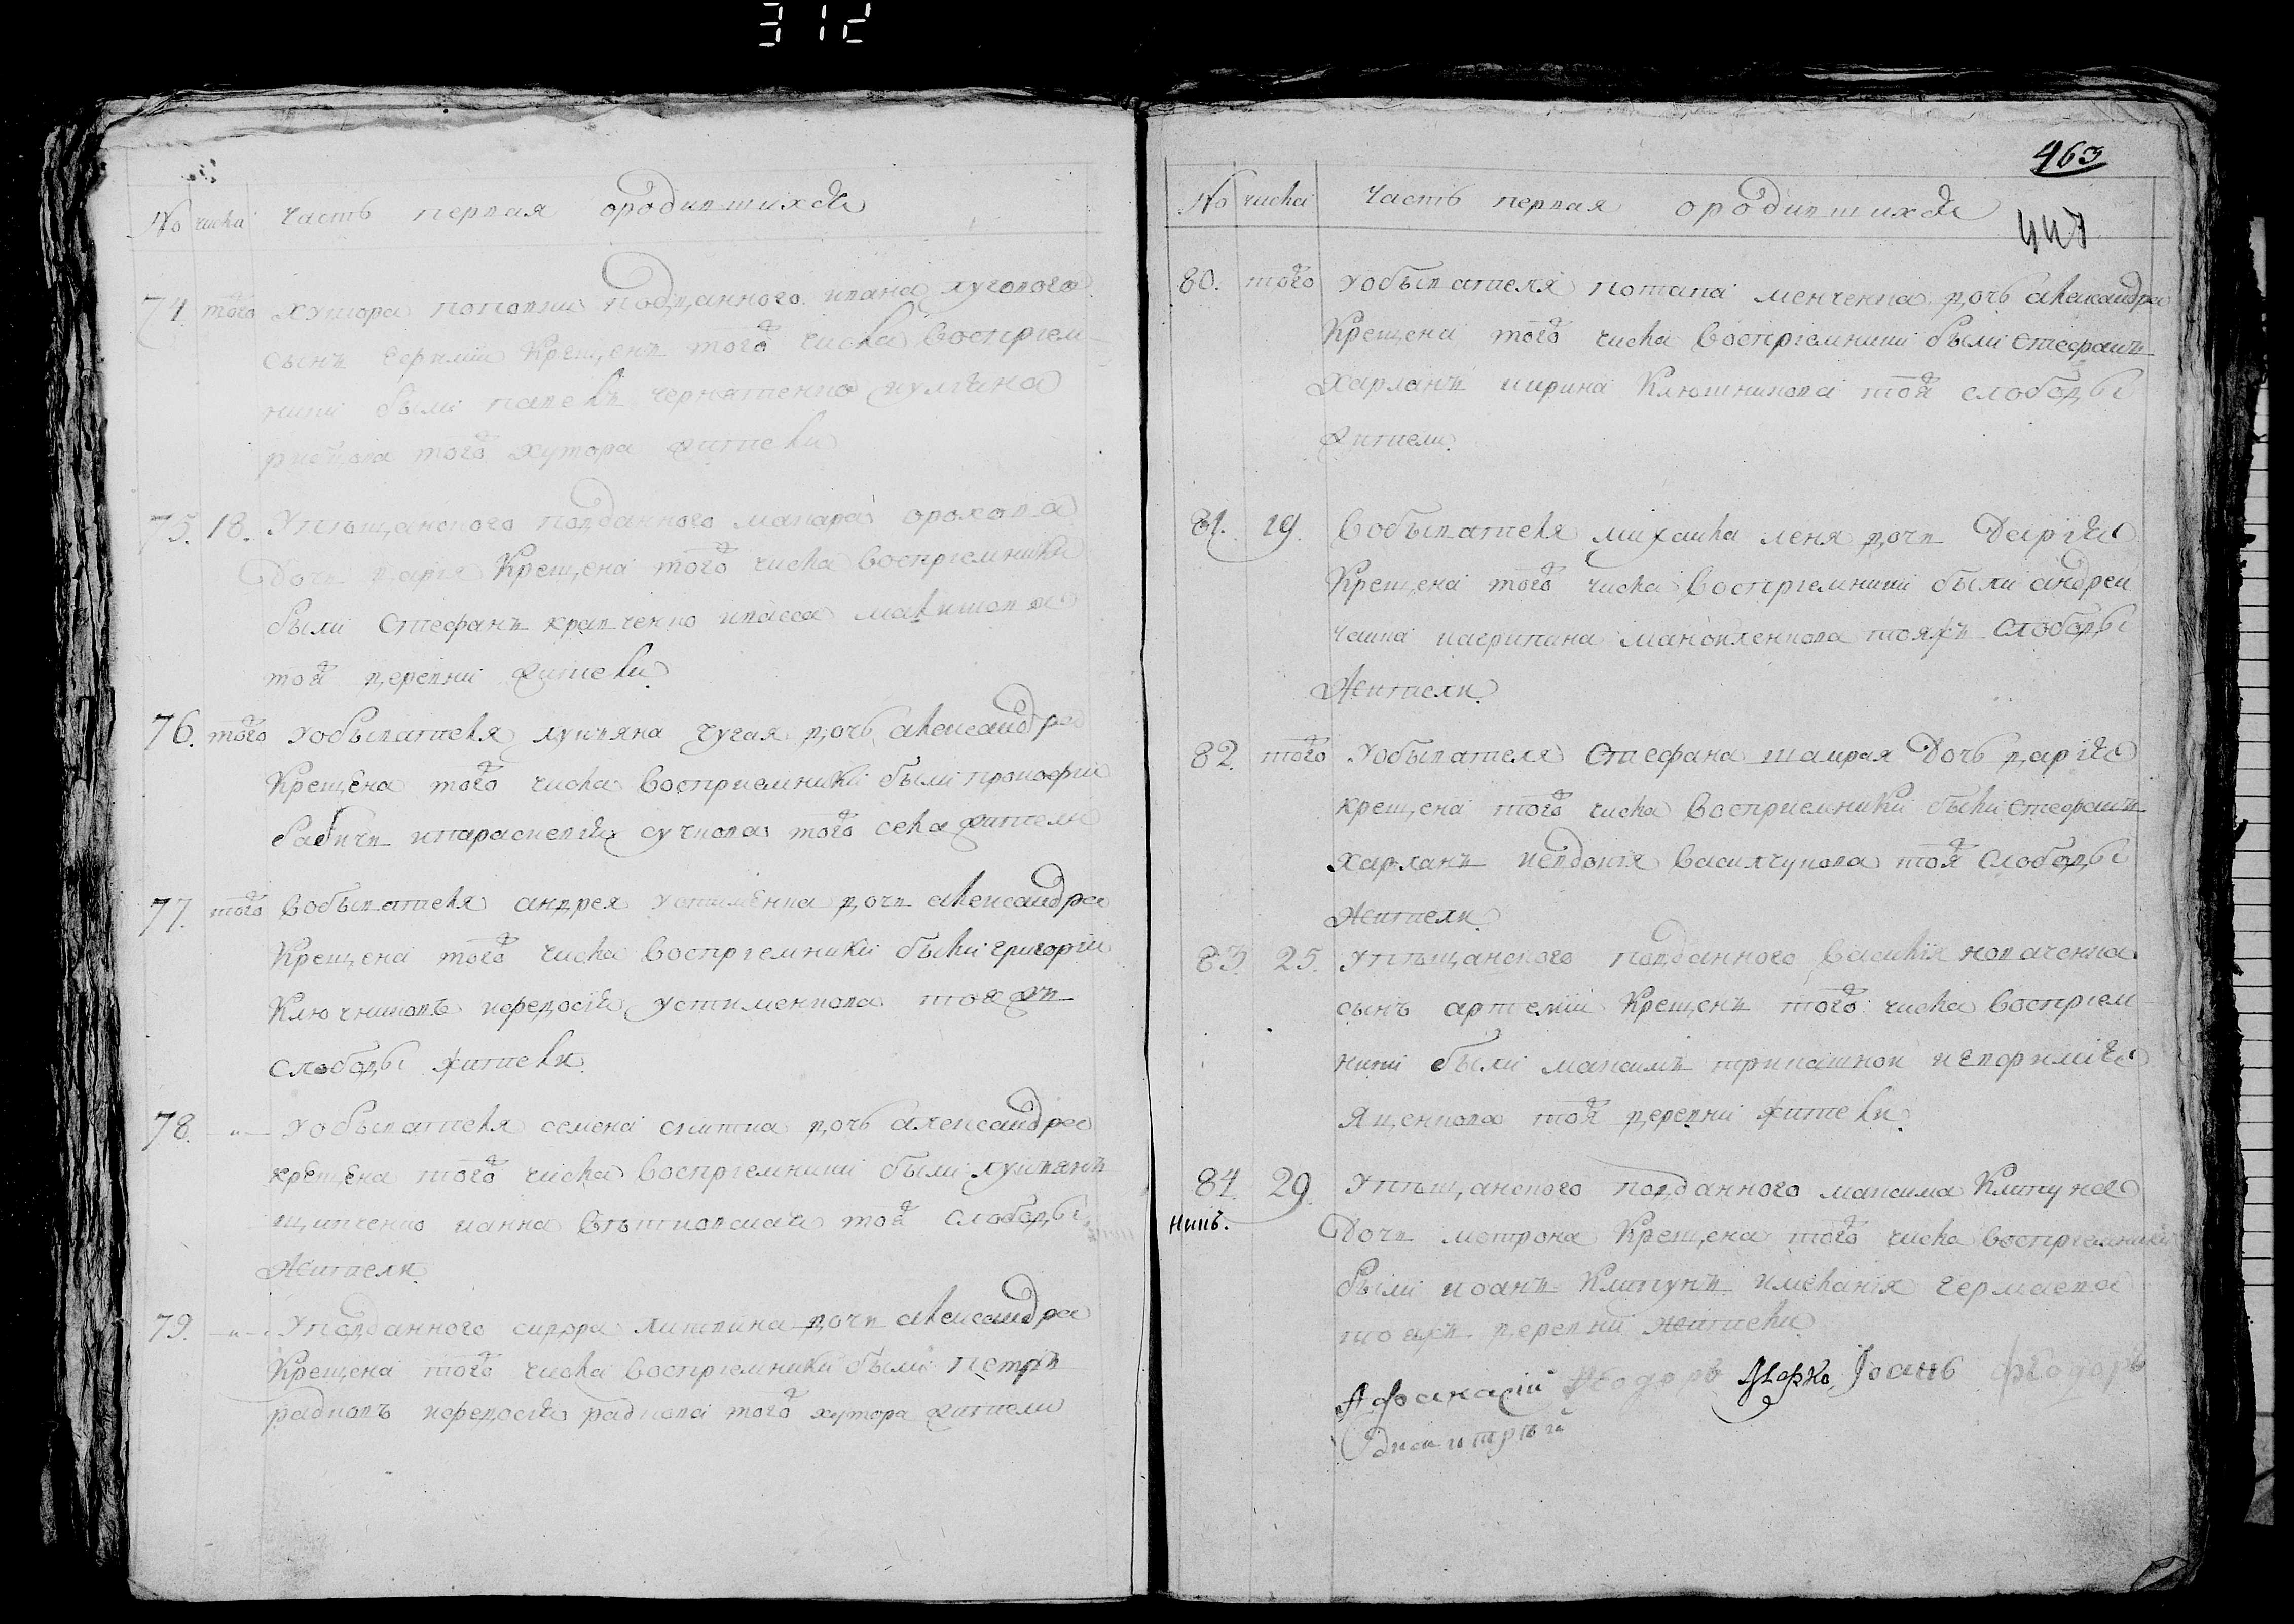 312
No числа часть первая ородившихся
74. того хутора поповки подданного ивана лугового
сынъ еремій крещенъ того ж числа восприем-
ники были павелъ чернятенко иулияна
того ж хутора жители
75. 18. Упѣщанского подданного макара орохова
Дочь дарія Крещена того ж числа восприемники
были Стефанъ кравченко ивасса
той ж деревни жители
76. того Уобывателя лукяна чугая дочь александра
Крещена того ж числа восприемники были прокофій
бабичь ипараскевія сучкова того ж села жители
77. того Вобывателя андрея устименка дочь александра
Крещена того ж числа восприемники были григорій
Ключниковъ иѳедосія устименкова тоя жъ
слободы жители
78. -"- Уобывателя семена снитка дочь александра
крещена того ж числа восприемники были лукянъ
ианна той ж слободы
Жители
79. -"- Уподданного сидора литвина дочь александра
Крещена того ж числа восприемники были петръ
радковъ иѳедосія радкова того ж хутора жители
463
447
No числа Часть первая ородившихся
80. того Уобывателя потапа менченка дочь александра
Крещена того ж числа восприемники были стефанъ
Харланъ иирина Клюшникова той ж слободы
жители
81. 19. Вобывателя михаила леня дочь Дарія
Крещена того ж числа восприемники были андрей
чаша иагрипина тояжъ слободы
Жители
82. того Уобывателя Стефана шамрая Дочь дарія
крещена того ж числа восприемники были стефанъ
харланъ иевдокія Василчукова той ж слободы
Жители
83. 25. Упѣщанского подданного василія коваченка
сынъ артемій Крещенъ того ж числа восприем-
ники были максимъ трикашной
Яценкова той ж деревни жители
84. 29. Упѣщанского подданного максима Клитуна
Дочь мотрона Крещена того ж числа восприемники
были иоанъ Клитунъ имеланія
тояжъ деревни жители
никъ.
Афанасій Ѳеодоръ Марко, Іоанъ Ѳеодоръ
Димитрій